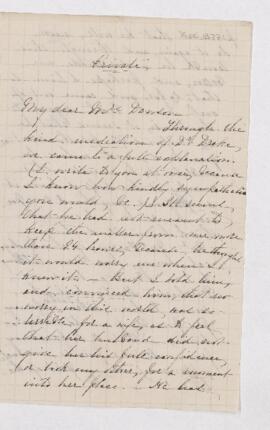 Private
My dear Mrs Dawson
Through the
kind mediation of Dr Drake,
we came to a full explanation.
(I write to you at once, because
I know how kindly sympathetic
you would be.)
that he had not meant to
keep the matter from me more
than 24 hours, because he thought
it would worry me when I
knew it — But I told him,
and convinced him, that no
worry in this world, was so
terrible for a wife, as to feel
that her husband did not
give her his full confidence,
or took any other, for a moment
into her place. — He had